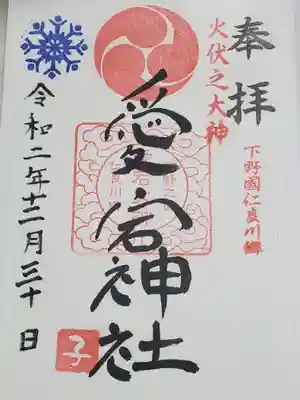 奉拝
下野國仁良川郷
火伏之大神
愛宕神社
令和二年十二月三十日
子